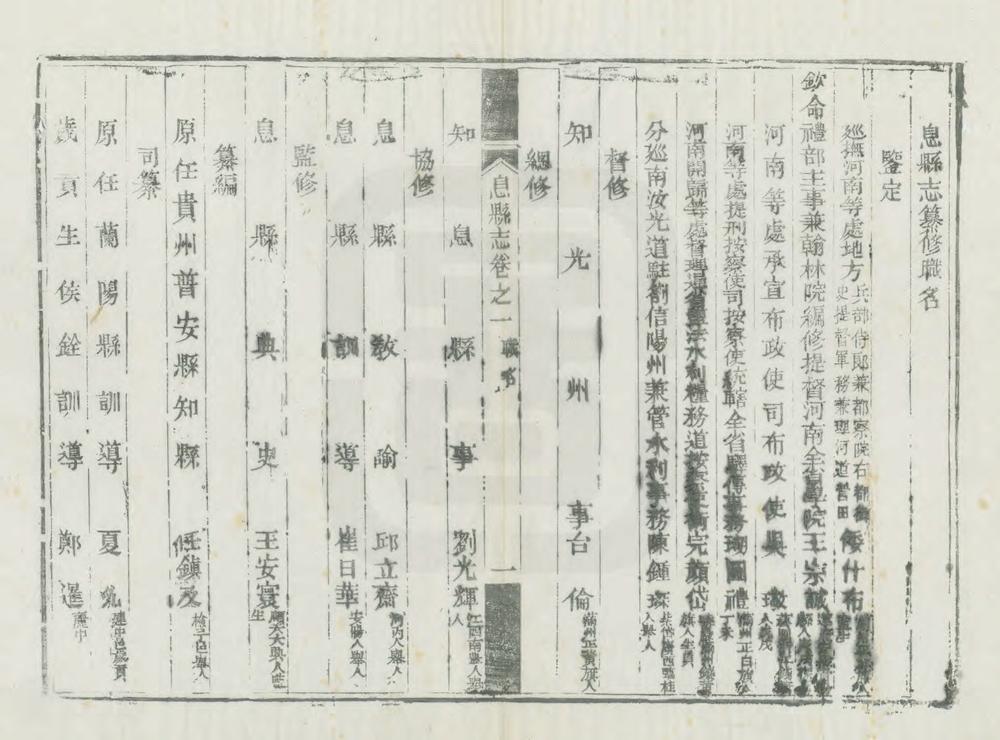 息縣志纂修職名
鑒定
巡撫河南等處地方兵部侍郎兼都察院右都御史提督軍務兼理河道營田倭什布
欽命禮部主事兼翰林院編修提督河南全省學院王宗誠
河南等處承宣布政使司布政使
河南等處提刑按察使司按察使統轄全省驛傳事務瑚圖禮
河南開歸等處督理水利糧務道完顏岱
分巡南汝光道駐劄信陽州兼管水利事務陳鍾琛
督修
知光州事台倫滿州正黃旗人
總修
息縣志卷之一 職名 一
知息縣事劉光輝江西南豐人舉人
協修
息縣教諭邱立齋河內人舉人
息縣訓導崔日華安陽人舉人
監修
息縣典史王安寰順天大興人監生
纂編
原任貴州普安縣知縣任鎮及
司纂
原任蘭陽縣訓導夏
歲貢生侯銓訓導鄭暹